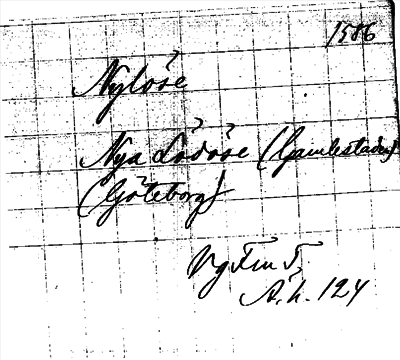 1586
Nylöse
Nya Lödöse (Gamlestaden)
(Göteborg)
Vg Fm 5,
A.h. 124